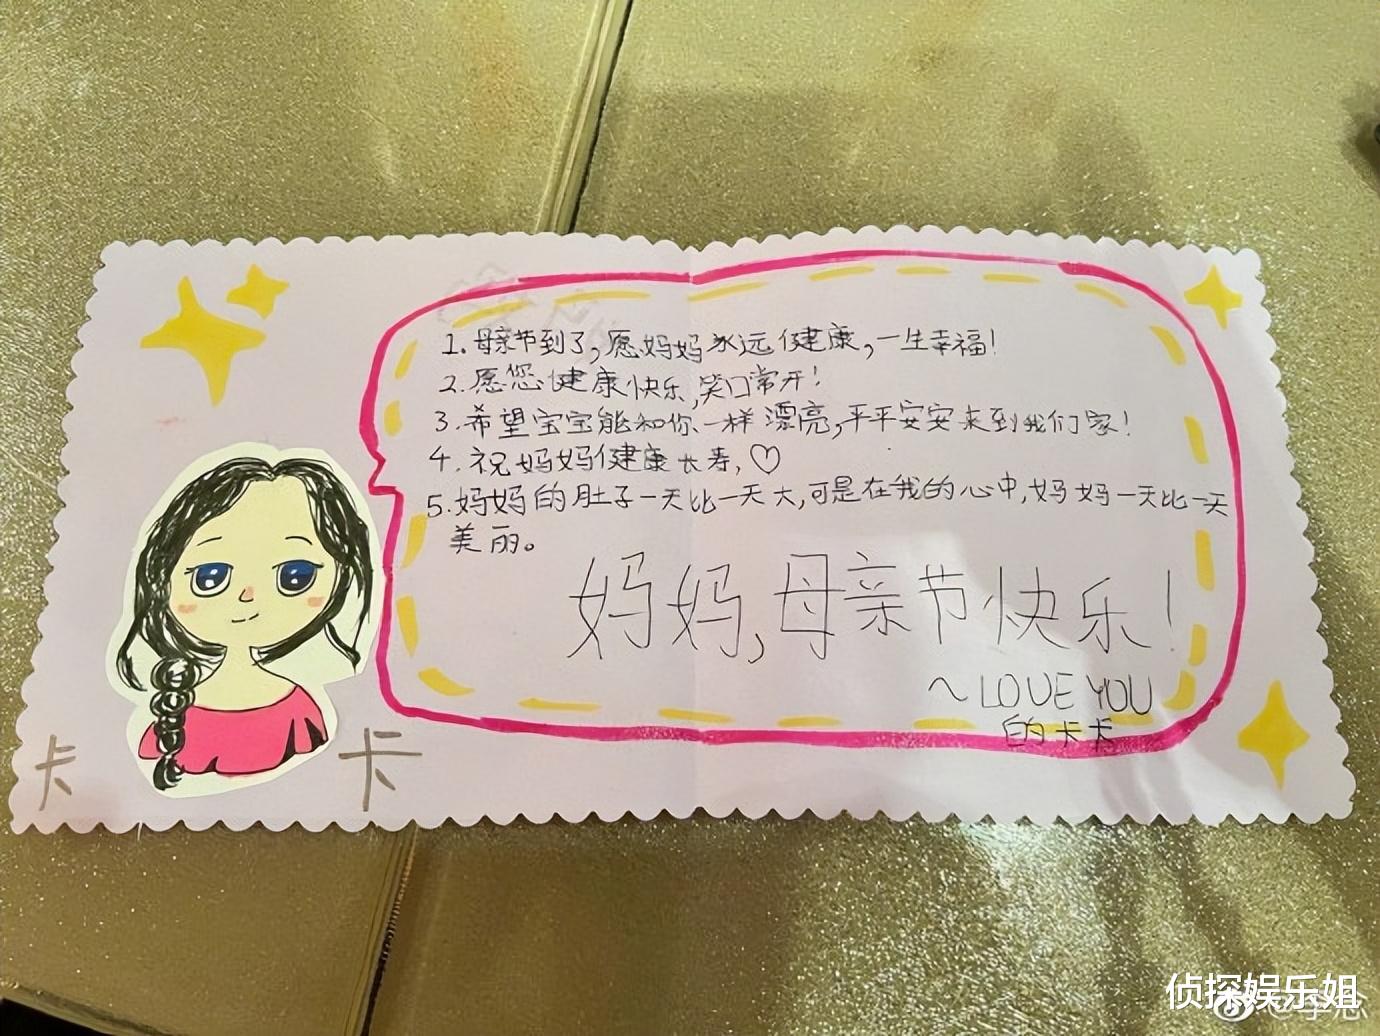 1.母亲节到了,愿妈妈永远健康,一生幸福!
2.愿您健康快乐,笑口常开!
3.希望宝宝能和你一样漂亮,平平安安来到我们家!
4.祝妈妈健康长寿,♡
5.妈妈的肚子一天比一天大,可是在我的心中,妈妈一天比一天
美丽。
妈妈,母亲节快乐!
~LOVE YOU
的卡卡
卡 卡
侦探娱乐姐
@李念